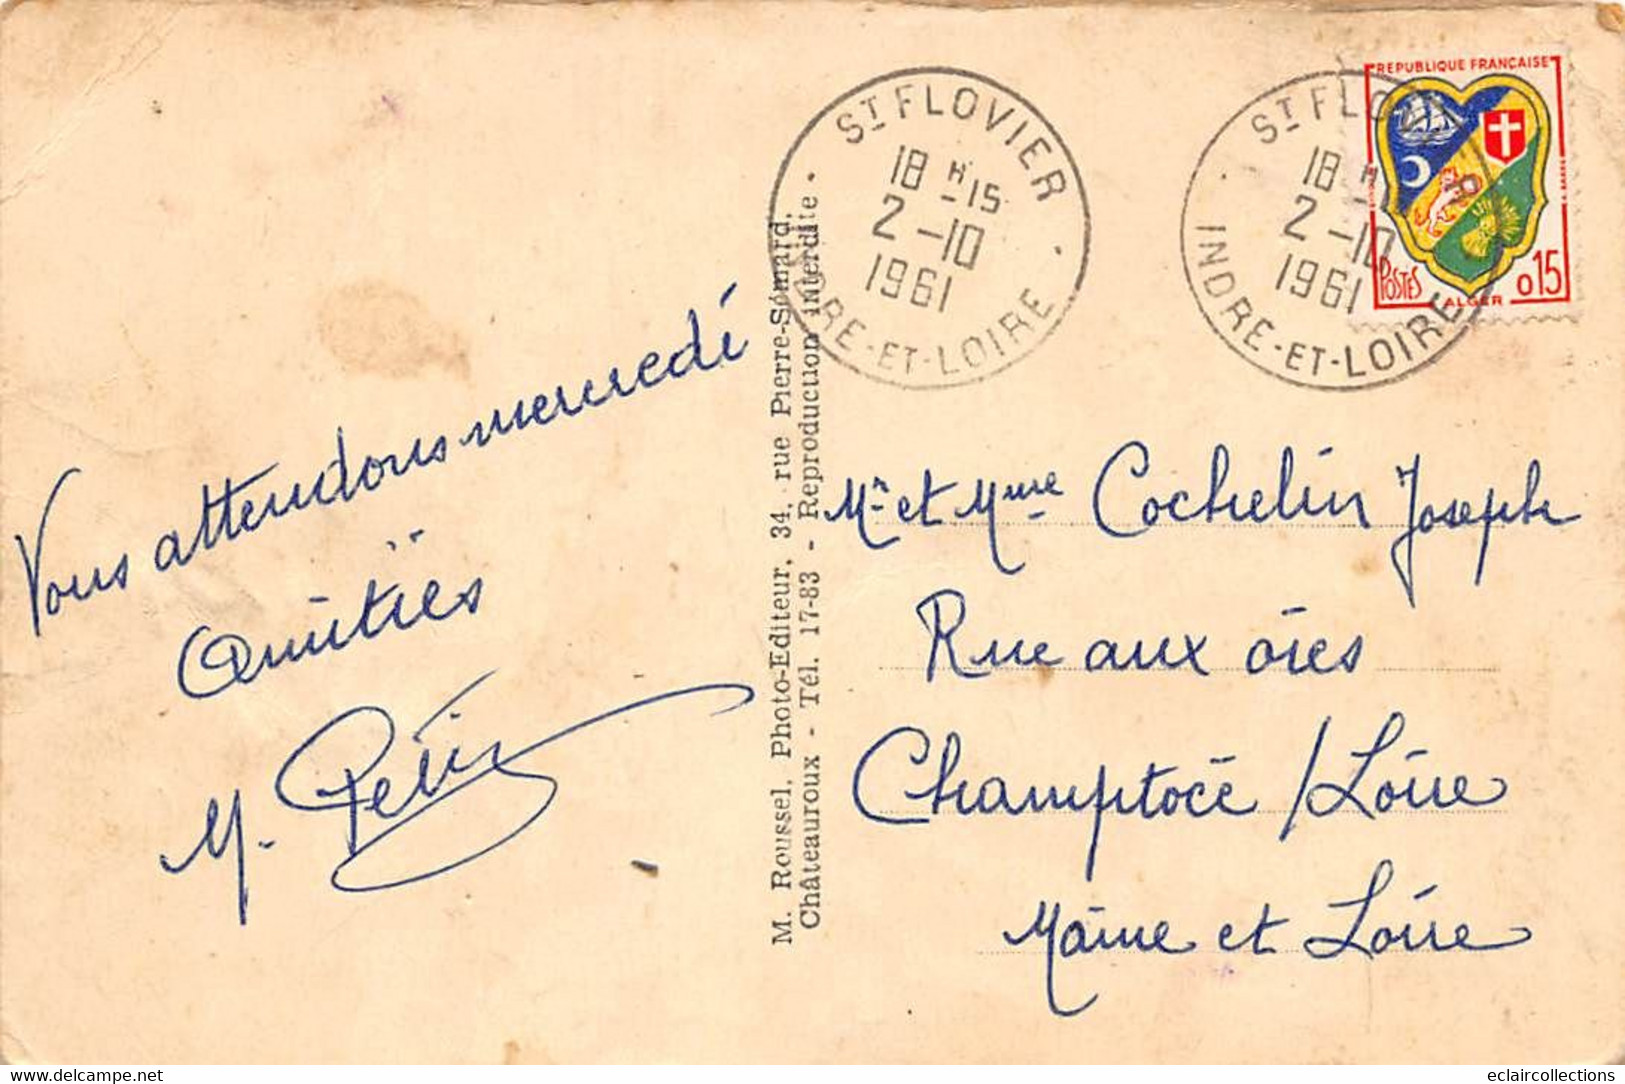 Vous attendons mercredi
Amitiés
M. Petit
M. Roussel, Photo-Editeur, 34, rue Pierre-Sémard,
Châteauroux - Tél. 17-83 - Reproduction interdite
ST FLOVIER
18 H 15
2-10
1961
INDRE-ET-LOIRE
ST FLOVIER
18 H
2-10
1961
INDRE-ET-LOIRE
REPUBLIQUE FRANÇAISE
POSTES
ALGER
0,15
Mr et Mme Cochelin Joseph
Rue aux oies
Champtocé /Loire
Maine et Loire
eclaircollections